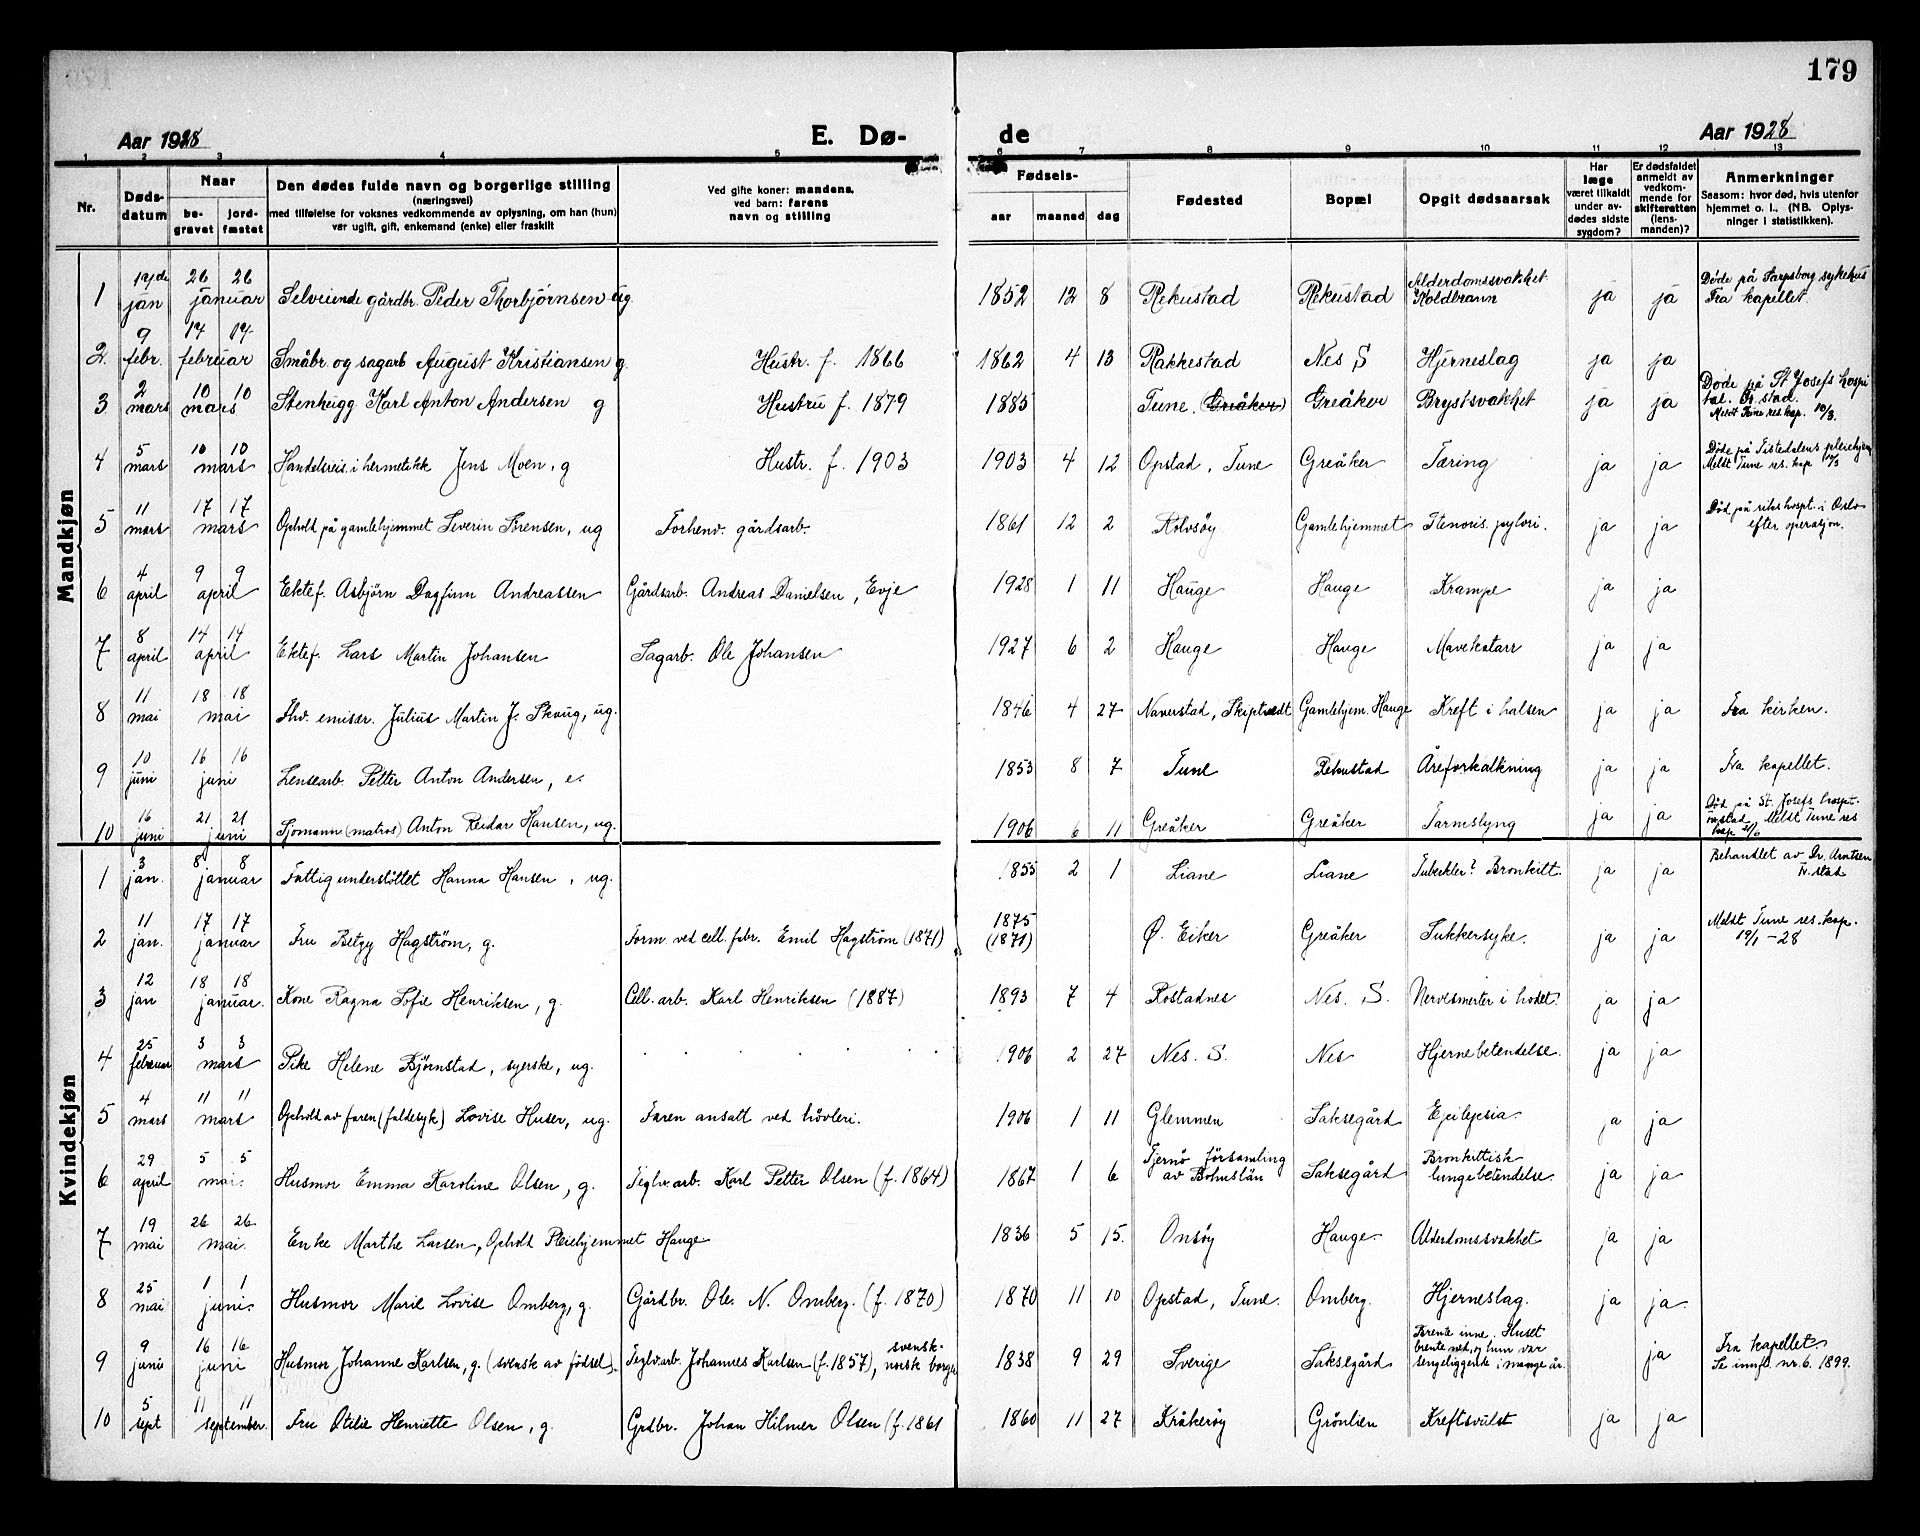 179
Aar 1928
E. Dø-
de
Aar 1928
1 2 3 4 5 6 7 8 9 10 11 12 13
Nr.
Døds-
datum
Naar
be-
gravet
jord-
fæstet
Den dødes fulde navn og borgerlige stilling
(næringsvei)
med tilføielse for voksnes vedkommende av oplysning, om han (hun)
var ugift, gift, enkemand (enke) eller fraskilt
Ved gifte koner: mandens,
ved barn: farens
navn og stilling
Fødsels-
aar maaned dag
Fødested
Bopæl
Opgit dødsaarsak
Har
læge
været tilkaldt
under av-
dødes sidste
sygdom?
Er dødsfaldet
anmeldt av
vedkom-
mende for
skifteretten
(lens-
manden)?
Anmerkninger
Saasom: hvor død, hvis utenfor
hjemmet o. l., (NB. Oplys-
ninger i statistikken).
Mandkjøn
1 19de jan 26 26 januar Selveiende gårdbr. Peder Thorbjørnsen ug 1852 12 8 Rekustad Rekustad Alderdomssvakhet Koldbrann ja ja Døde på Sarpsborg sykehus Fra kapellet.
2 9 febr. 14 14 februar Småbr og sagarb August Kristiansen g. Hustr. f. 1866 1862 4 13 Rakkestad Nes S Hjerneslag ja ja
3 2 mars 10 10 mars Stenhugg Karl Anton Andersen g Hustru f. 1879 1885 Tune. (Greåker) Greåker Brystsvakhet ja ja Døde på St Josefs hospital. Fr.stad. Meldt Tune res. kap. 10/3.
4 5 mars 10 10 mars Handelsreis. i hermetikk Jens Moen, g Hustr. f. 1903 1903 4 12 Opstad, Tune Greåker Tæring ja ja Døde på Tistedalens pleiehjem Meldt Tune res. kap
5 11 mars 17 17 mars Ophold på gamlehjemmet Severin Sørensen, ug Forhenv. gårdsarb. 1861 12 2 Rolvsøy Gamlehjemmet Stenoris. pylori. ja ja Død på rikshospt. i Oslo efter operasjon.
6 4 april 9 9 april Ektef. Asbjørn Dagfinn Andreassen Gårdsarb. Andreas Danielsen, Evje 1928 1 11 Hauge Hauge Krampe ja ja
7 8 april 14 14 april Ektef. Lars Martin Johansen Sagarb. Ole Johansen 1927 6 2 Hauge Hauge Mavekatarr ja ja
8 11 mai 18 18 mai Fhv. emisær. Julius Martin J. Skaug, ug. 1846 4 27 Naverstad, Skiptvedt Gamlehjem. Hauge Kreft i halsen ja ja Fra kirken.
9 10 juni 16 16 juni Lensearb. Petter Anton Andersen, e. 1853 8 7 Tune Rekustad Åreforkalkning ja ja Fra kapellet.
10 16 juni 21 21 juni Sjømann (matros) Anton Reidar Hansen, ug. 1906 6 11 Greåker Greåker Tarmslyng ja ja Død på St. Josefs hospt. Fr.stad Meldt Tune res kap
Kvindekjøn
1 3 jan. 8 8 januar Fattigunderstøttet Hanna Hansen, ug. 1855 2 1 Liane Liane Tuberkler? Bronkitt. ja ja Behandlet av Dr. Arntsen Fr.stad
2 11 jan. 17 17 januar Fru Betzy Hagström, g. Form. ved cell. fabr. Emil Hagström (1871) 1875 (1871) Ø. Eiker Greåker Sukkersyke. ja ja Meldt Tune res. kap. 19/1 - 28
3 12 jan 18 18 januar. Kone Ragna Sofie Henriksen, g. Cell. arb. Karl Henriksen (1887) 1893 7 4 Rostadnes Nes. S. Nervesmerter i hodet. ja ja
4 25 februar 3 3 mars Pike Helene Bjørnstad, syerske, ug. 1906 2 27 Nes. S. Nes Hjernebetendelse. ja ja
5 4 mars 11 11 mars Ophold av faren (faldesyk) Lovise Huser, ug. Faren ansatt ved høvleri. 1906 1 11 Glemmen Saksegård Epilepsia. ja ja
6 29 april 5 5 mai. Husmor Emma Karoline Olsen, g. Teglv.arb. Karl Petter Olsen (f. 1864) 1867 1 6 Tjernö församling av Bohuslän Saksegård Bronkittisk lungebetendelse. ja ja
7 19 mai 26 26 mai. Enke Marthe Larsen, Ophold Pleiehjemmet Hauge 1836 5 15. Onsøy Hauge. Alderdomssvakhet ja ja
8 25 mai 1 1 juni. Husmor Marie Lovise Omberg, g. Gårdbr. Ole. N. Omberg. (f. 1870) 1870 11 10 Opstad, Tune. Omberg. Hjerneslag. ja ja.
9 9 juni 16 16 juni Husmor Johanne Karlsen, g. (svensk av födsel). Teglv.arb. Johannes Karlsen (f. 1857), svensk-norsk borger 1838 9 29 Sverige Saksegård Brente inne. Huset brente ned, og hun var sengeliggende i mange år. ja Fra kapellet. Se innfl. nr. 6. 1899.
10 5 sept 11 11 september. Fru Otilie Henriette Olsen, g. Grdbr. Johan Hilmer Olsen (f. 1861 1860 11 27 Kråkerøy Grønlien Kreftsvulst ja ja